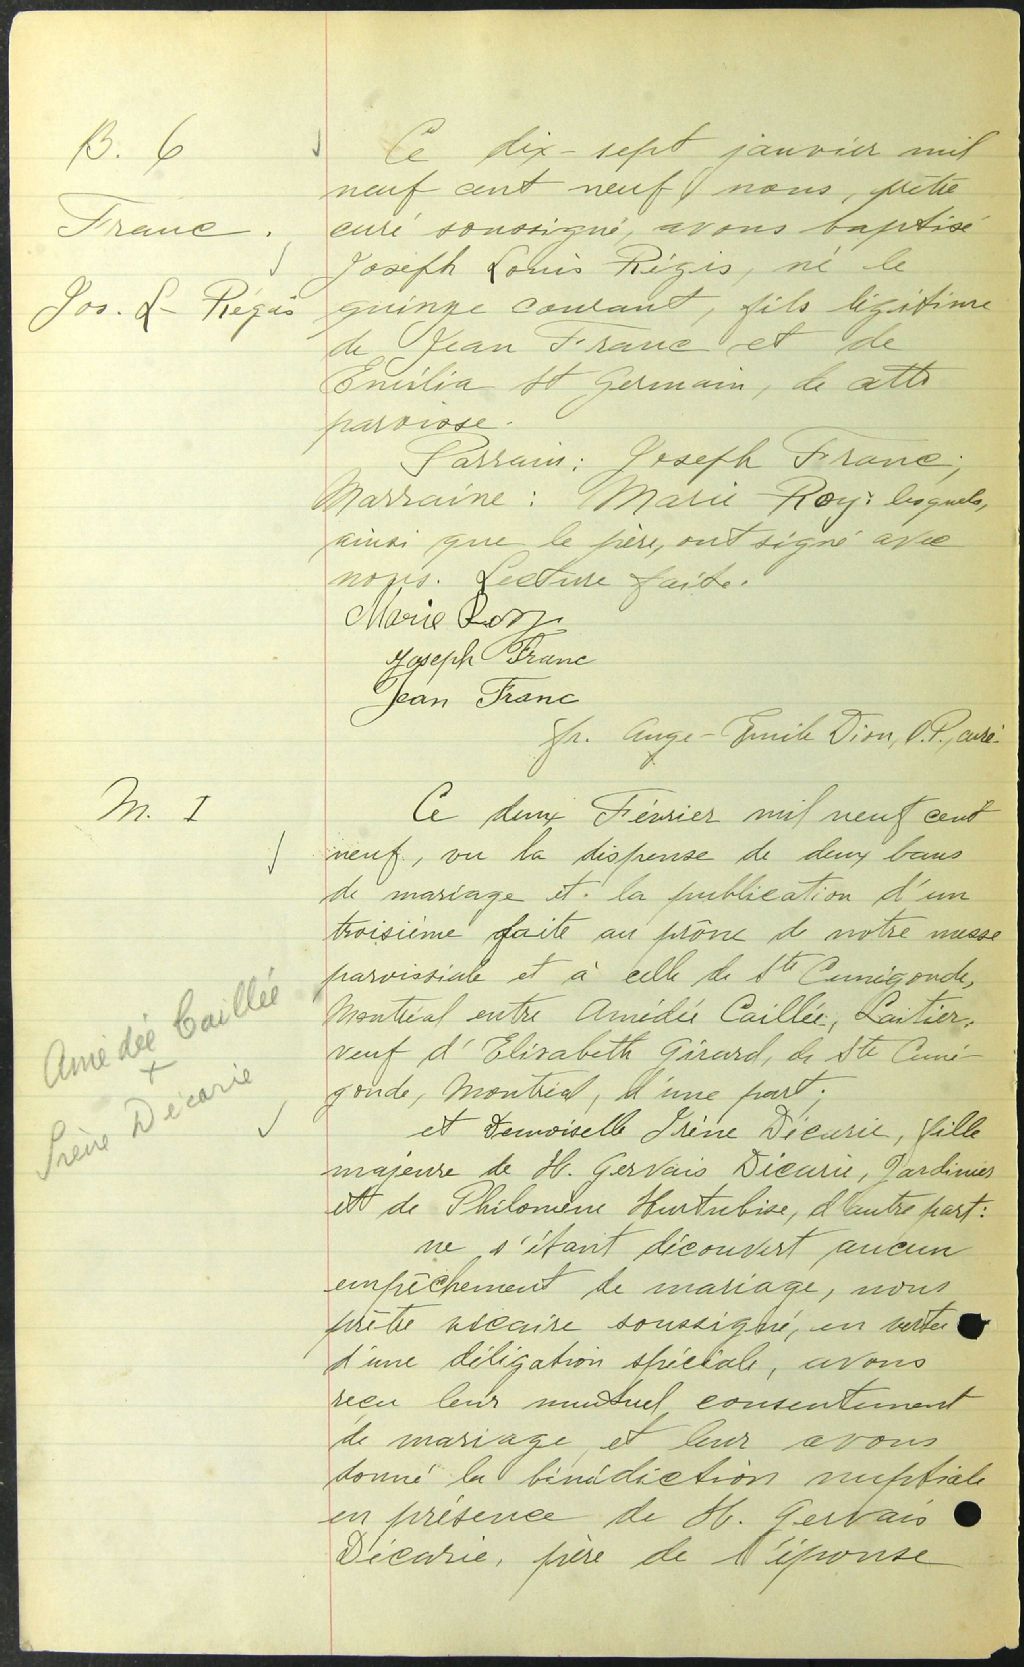 B. 6
Franc.
Jos. L- Régis
Ce dix-sept janvier mil
neuf cent neuf, nous, prêtre
curé soussigné, avons baptisé
Joseph Louis Régis, né le
quinze courant, fils légitime
de Jean Franc et de
Emilia St Germain, de cette
paroisse.
Parrain: Joseph Franc;
Marraine: Marie Roy: lesquels,
ainsi que le père, ont signé avec
nous. Lecture faite.
Marie Roy
Joseph Franc
Jean Franc
fr. Ange-Emile Dion, O.P., curé.
M. I
Amédée Caillée
+
Irène Décarie
Ce deux Février mil neuf cent
neuf, vu la dispense de deux bans
de mariage et la publication d'un
troisième faite au prône de notre messe
paroissiale et à celle de Ste Cunégonde,
Montréal entre Amédée Caillée, Laitier,
veuf d'Elizabeth Girard, de Ste Cuné-
gonde, Montréal, d'une part;
et Demoiselle Irène Décarie, fille
majeure de H. Gervais Décarie, Jardinier
et de Philomène Hurtubise, d'autre part:
ne s'étant découvert aucun
empêchement de mariage, nous
prêtre vicaire soussigné, en vertu
d'une déligation spéciale, avons
reçu leur mutuel consentement
de mariage et leur avons
donné la bénédiction nuptiale
en présence de H. Gervais
Décarie, père de l'épouse